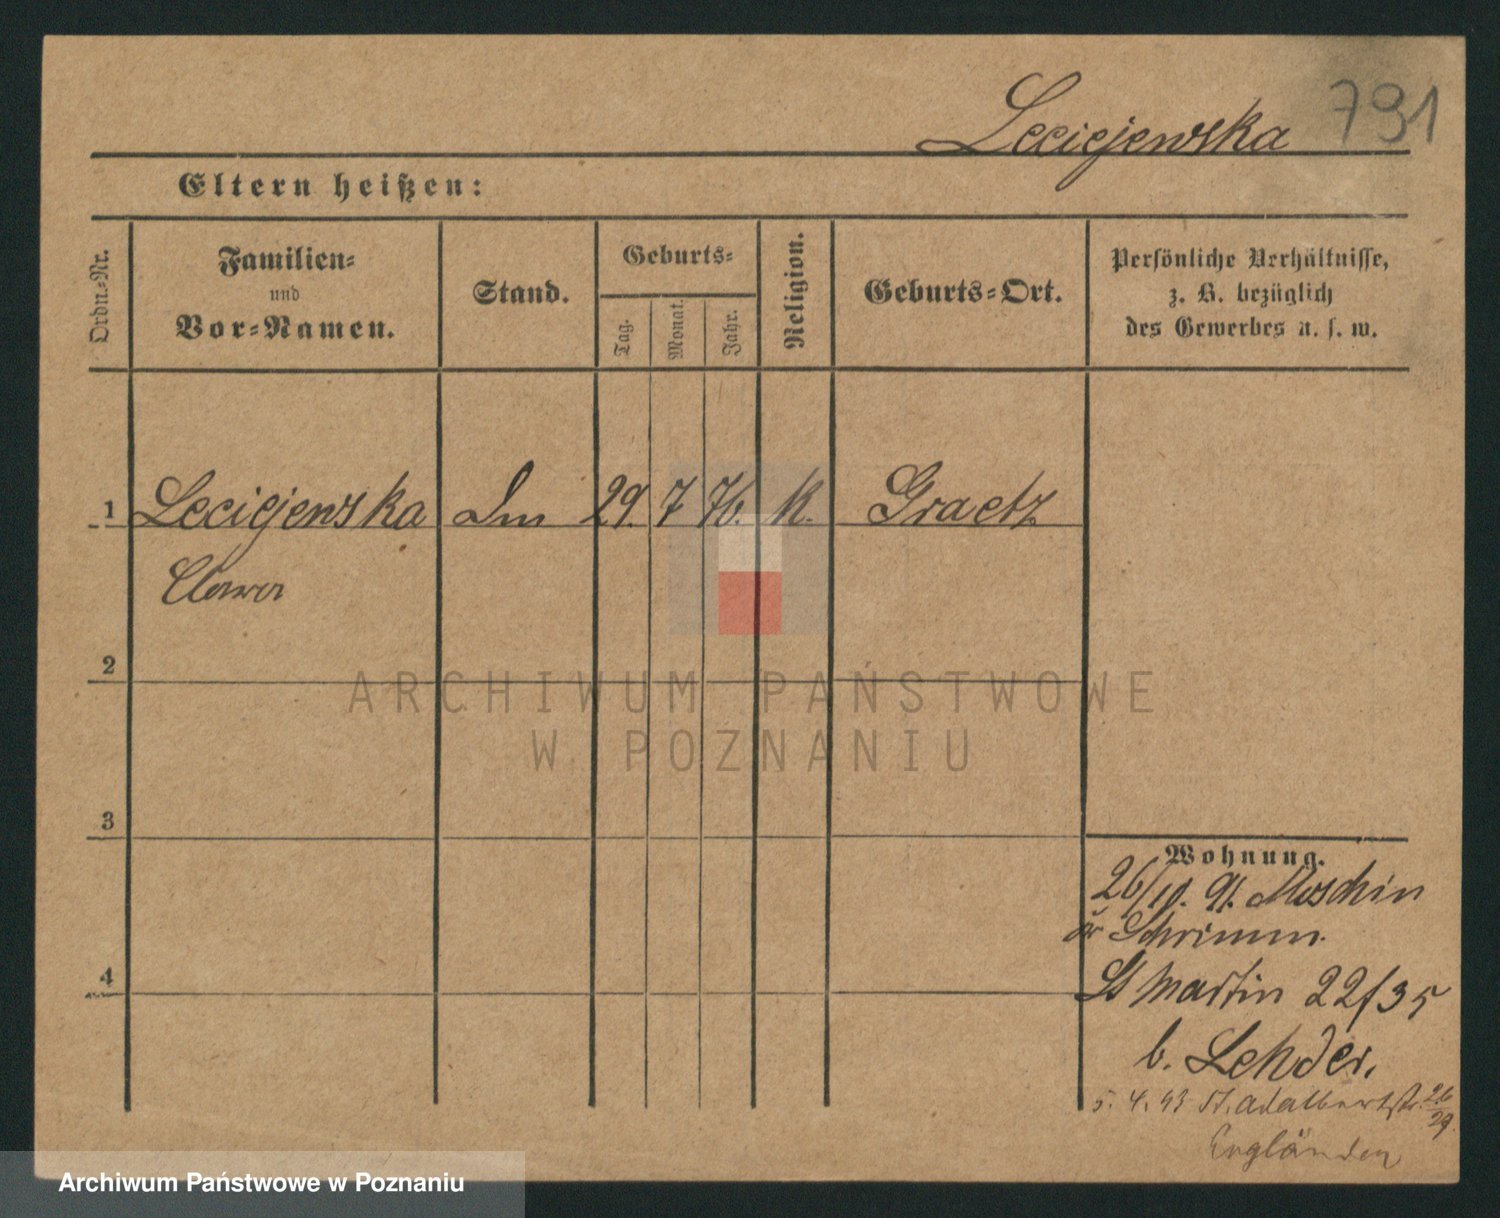 Leciejewska 791
Eltern heißen:
Ordn.-Nr.
Familien-
und
Vor-Namen.
Stand.
Geburts-
Tag.
Monat.
Jahr.
Religion.
Geburts-Ort.
Persönliche Verhältnisse,
z. B. bezüglich
des Gewerbes u. s. w.
1 Leciejewska 29. 7 76. K. Graetz
Clara
2
ARCHIWUM PAŃSTWOWE
W POZNANIU
3
4
Wohnung.
26/10. 91. Moschin
Schrimm.
St Martin 22/35
b. Lehder.
5. 4. 93 St. Adalbertstr. 26
29.
Engländer
Archiwum Państwowe w Poznaniu